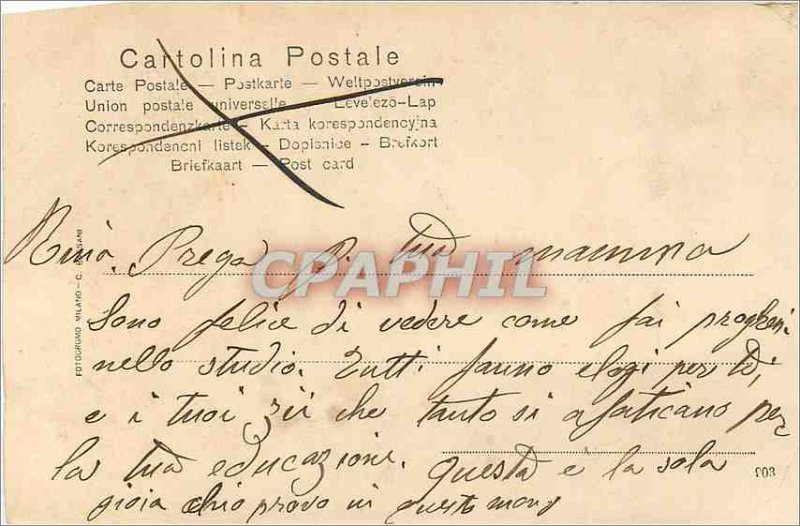 Cartolina Postale
Carte Postale — Postkarte — Weltpostverein
Union postale universelle — Levelezö-Lap
Correspondenzkarte — Karta korespondencyjna
Korespondencni listek — Dopisnice — Brefkort
Briefkaart — Post card
Prega p. tua mamma
CPAPHIL
Sono felice di vedere come fai
nello studio. Tutti fanno elogi per te,
e i tuoi zii che tanto si afaticano per
la tua educazione. Questa è la sola
gioia ch'io provo in questo
FOTODROMO MILANO—C.
903